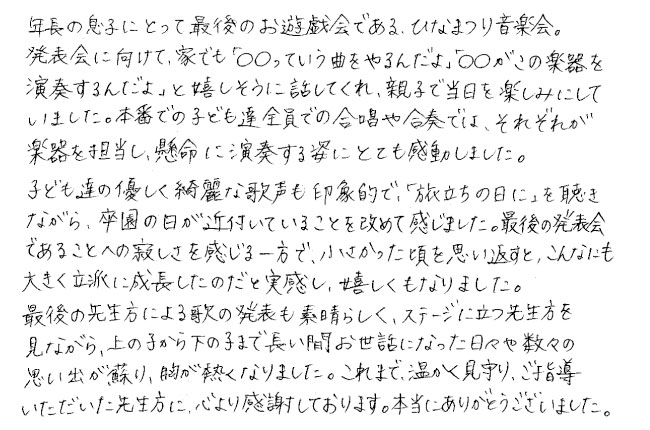 年長の息子にとって最後のお遊戯会である、ひなまつり音楽会。
発表会に向けて、家でも「〇〇っていう曲をやるんだよ」「〇〇がこの楽器を
演奏するんだよ」と嬉しそうに話してくれ、親子で当日を楽しみにして
いました。本番での子ども達全員での合唱や合奏では、それぞれが
楽器を担当し、懸命に演奏する姿にとても感動しました。
子ども達の優しく綺麗な歌声も印象的で、「旅立ちの日に」を聴き
ながら、卒園の日が近付いていることを改めて感じました。最後の発表会
であることへの寂しさを感じる一方で、小さかった頃を思い返すと、こんなにも
大きく立派に成長したのだと実感し、嬉しくもなりました。
最後の先生方による歌の発表も素晴らしく、ステージに立つ先生方を
見ながら、上の子から下の子まで長い間お世話になった日々や数々の
思い出が蘇り、胸が熱くなりました。これまで、温かく見守り、ご指導
いただいた先生方に、心より感謝しております。本当にありがとうございました。